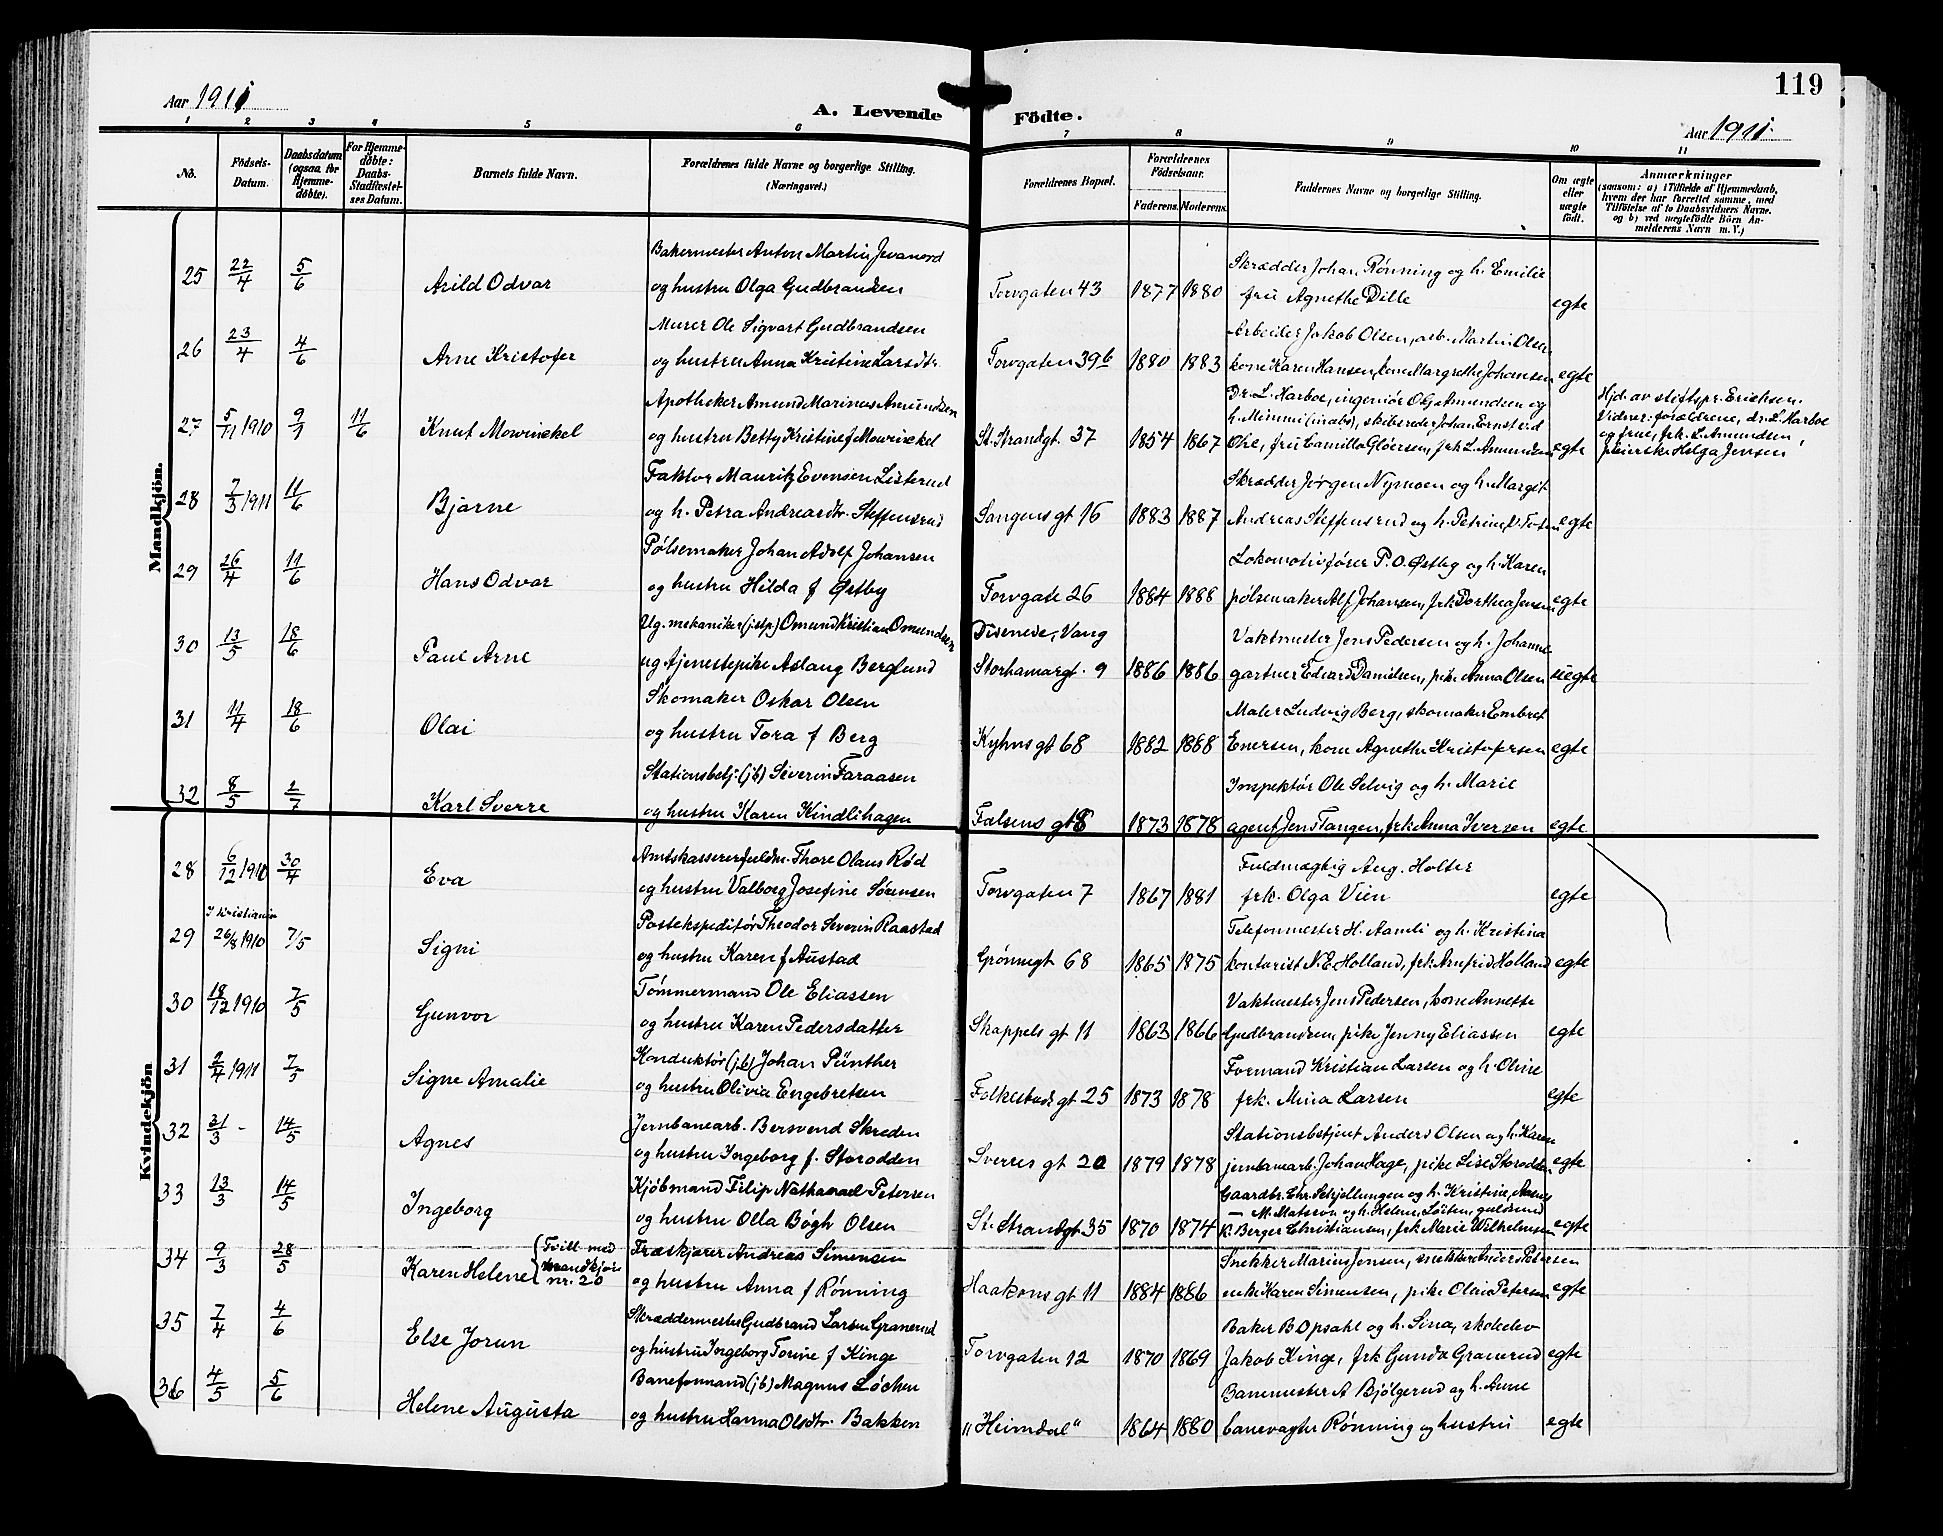 119
Aar 1911
A. Levende Födte.
Aar 1911.
1 2 3 4 5 6 7 8 9 10 11
No.
Födsels-Datum.
Daabsdatum (ogsaa for Hjemme-döbte).
For Hjemme-döbte: Daabs-Stadfæstel-ses Datum.
Barnets fulde Navn.
Forældrenes fulde Navne og borgerlige Stilling. (Næringsvei.)
Forældrenes Bopæl.
Forældrenes Födselsaar.
Faderens. Moderens.
Faddernes Navne og borgerlige Stilling.
Om ægte eller uægte födt.
Anmærkninger
(saasom: a) i Tilfælde af Hjemmedaab,
hvem der har forrettet samme, med
Tilföielse af to Daabsvidners Navne.
og b) ved uægtefödte Börn An-
melderens Navn m. V.)
Mandkjön.
Bakermester Anton Martin Jevanord
Skrædder Johan Rønning og h. Emilie
25 22/4 5/6 Arild Odvar og hustru Olga Gudbrandsen Torvgaten 43 1877 1880 fru Agnethe Dille egte
Murer Ole Sigvart Gudbrandsen
Arbeider Jakob Olsen, arb. Martin Olsen
26 23/4 4/6 Arne Kristofer og hustru Anna Kristine Larsdtr. Torvgaten 39b 1880 1883 kone Karen Hansen, kone Margrethe Johansen egte
Apotheker Amund Marinus Amundsen
Dr. L. Harboe, ingeniør O.G. Amundsen og
h. Mimmi (inabs), skibsreder Johan Ernst v.d.
27 5/11 1910 9/1 11/6 Knut Mowinckel og hustru Betty Kristine f Mowinckel St. Strandgt. 37 1854 1867 Ohe, fru Camilla Gløersen, frk L. Amundsen egte
Hjd. av stiftspr. Erichsen.
Vidner: forældrene, dr. L. Harboe
og frue, frk. L. Amundsen,
pleierske Helga Jensen
Faktor Mauritz Evensen Listerud
Skrædder Jørgen Nymoen og h. Margit
28 7/3 1911 11/6 Bjarne og h. Petra Andreasdtr. Steffensrud Vangens gt 16 1883 1887 Andreas Steffensrud og h. Petrine, V. Toten egte
Pølsemaker Johan Adolf Johansen
Lokomotivfører P.O. Østby og h. Karen
29 26/4 11/6 Hans Odvar og hustru Hilda f Østby Torvgate 26 1884 1888 pølsemaker Alf Johansen, frk. Dorthea Jensen egte
Ug. mekaniker (jstp) Omund Kristian Omundsen
Disenede, Vang
Vaktmester Jens Pedersen og h. Johanne
30 13/5 18/6 Paul Arne ug tjenestepike Aslaug Berglund Storhamargt. 9 1886 1886 gartner Edvard Danielsen, pike Anna Olsen uegte
Skomaker Oskar Olsen
Maler Ludvig Berg, skomaker Embret
31 11/4 18/6 Olai og hustru Tora f Berg Kyhns gt 68 1882 1888 Enersen, kone Agnethe Kristofersen egte
Stationsbetj. (jb) Severin Faraasen
Inspektør Ole Selvig og h. Marie
32 8/5 2/7 Karl Sverre og hustru Karen Kindlihagen Falsens gt 18 1873 1878 agent Jens Tangen, frk Anna Iversen egte
Kvindekjön
Amtskassererfuldm. Thore Olaus Rød
Fuldmægtig Aug. Holter
28 6/12 1910 30/4 Eva og hustru Valborg Josefine Sørensen Torvgaten 7 1867 1881 frk. Olga Vien egte
I Kristiania
Postekspeditør Theodor Severin Raastad
Telefonmester H. Aamli og h. Kristina
29 26/8 1910 7/5 Signi og hustru Karen f Austad Grønnegt 68 1865 1875 kontorist N.E. Holland, frk. Arnfrid Holland egte
Tømmermand Ole Eliassen
Vaktmester Jens Pedersen, kone Annette
30 18/12 1910 7/5 Gunvor og hustru Karen Pedersdatter Skappels gt 11 1863 1866 Gudbrandsen, pike Jenny Eliassen egte
Konduktør (jb) Johan Pünther
Formand Kristian Larsen og h. Oline
31 2/4 1911 7/5 Signe Amalie og hustru Olivia Engebretsen Folkestads gt 25 1873 1878 frk. Mina Larsen egte
Jernbanearb. Bersvend Skreden
Stationsbetjent Anders Olsen og h. Karen
32 31/3 - 14/5 Agnes og hustru Ingeborg f. Storodden Sverres gt 20 1879 1878 jernbanearb. Johan Hage, pike Lise Storodden egte
Kjøbmand Filip Nathanael Petersen
Gaardbr. Chr. Schjellungen og h. Kristine, Aasnes
— M. Matsson og h. Helene, Løiten, guldsmed
33 13/3 14/5 Ingeborg og hustru Olla Bøgh Olsen St. Strandgt 35 1870 1874 K. Berger Christiansen, frk. Marie Wilhelmsen egte
Fræskjører Andreas Simensen
Snekker Marius Jensen, snekker Anders Petersen
34 9/3 28/5 Karen Helene (Tvill. med mandkjøn nr. 20 og hustru Anna f Rønning Haakons gt 11 1884 1886 enke Karen Simensen, pike Olai Petersen egte
Skræddermester Gudbrand Larsen Granerud
Baker B. Opsahl og h. Sina, skoleelev
35 7/4 4/6 Else Jorun og hustru Ingeborg Torine f Kinge Torvgaten 12 1870 1869 Jakob Kinge, frk Gunda Granerud egte
Baneformand (jb) Magnus Løchen
Banemester A Bjølgerud og h. Anne
36 4/5 5/6 Helene Augusta og hustru Hanna Olsdtr. Bakken "Heimdal" 1864 1880 banevagter Rønning og hustru egte